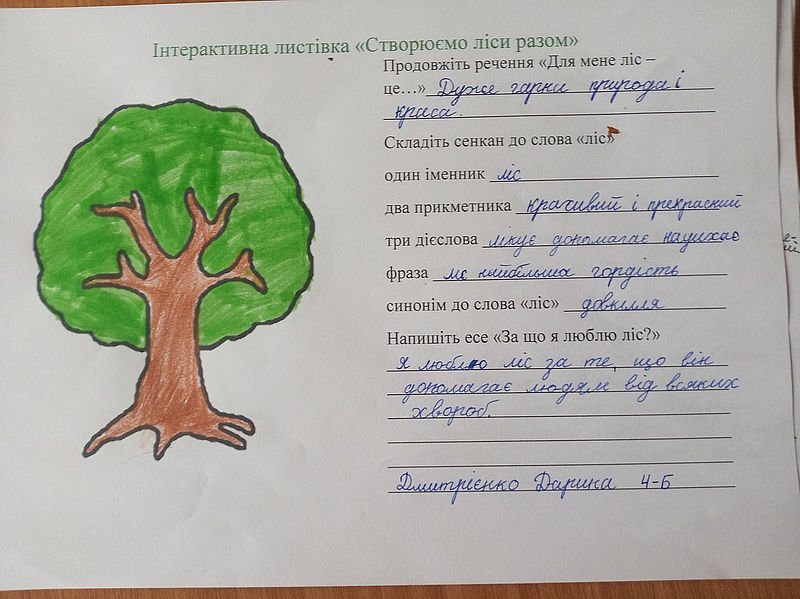 Інтерактивна листівка «Створюємо ліси разом»
Продовжіть речення «Для мене ліс –
це…» Дуже гарна природа і
краса.
Складіть сенкан до слова «ліс»
один іменник ліс
два прикметника красивий і прекрасний
три дієслова лікує допомагає надихає
фраза ліс найбільша гордість
синонім до слова «ліс» довкілля
Напишіть есе «За що я люблю ліс?»
Я люблю ліс за те, що він
допомагає людям від всяких
хвороб.
Дмитрієнко Дарина 4-Б